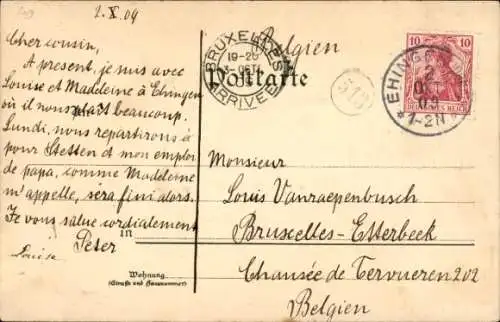 2.X.09
Cher cousin,
A présent, je suis avec
Louise et Madeleine à Ehingen
où il nous plaît beaucoup.
Lundi, nous repartirons
pour Stetten et mon emploi
de papa, comme Madeleine
m'appelle, sera fini alors.
Je vous salue cordialement
Peter
Louise
Belgien
Postkarte
BRUXELLES
19-20
ARRIVEE
518
10 10
DEUTSCHES REICH
EHINGEN
2
OCT
09
*1-2N
Monsieur
Louis Vanraepenbusch
in Bruxelles-Etterbeek
Chaussée de Tervueren 202
Belgien
Wohnung
(Straße und Hausnummer)